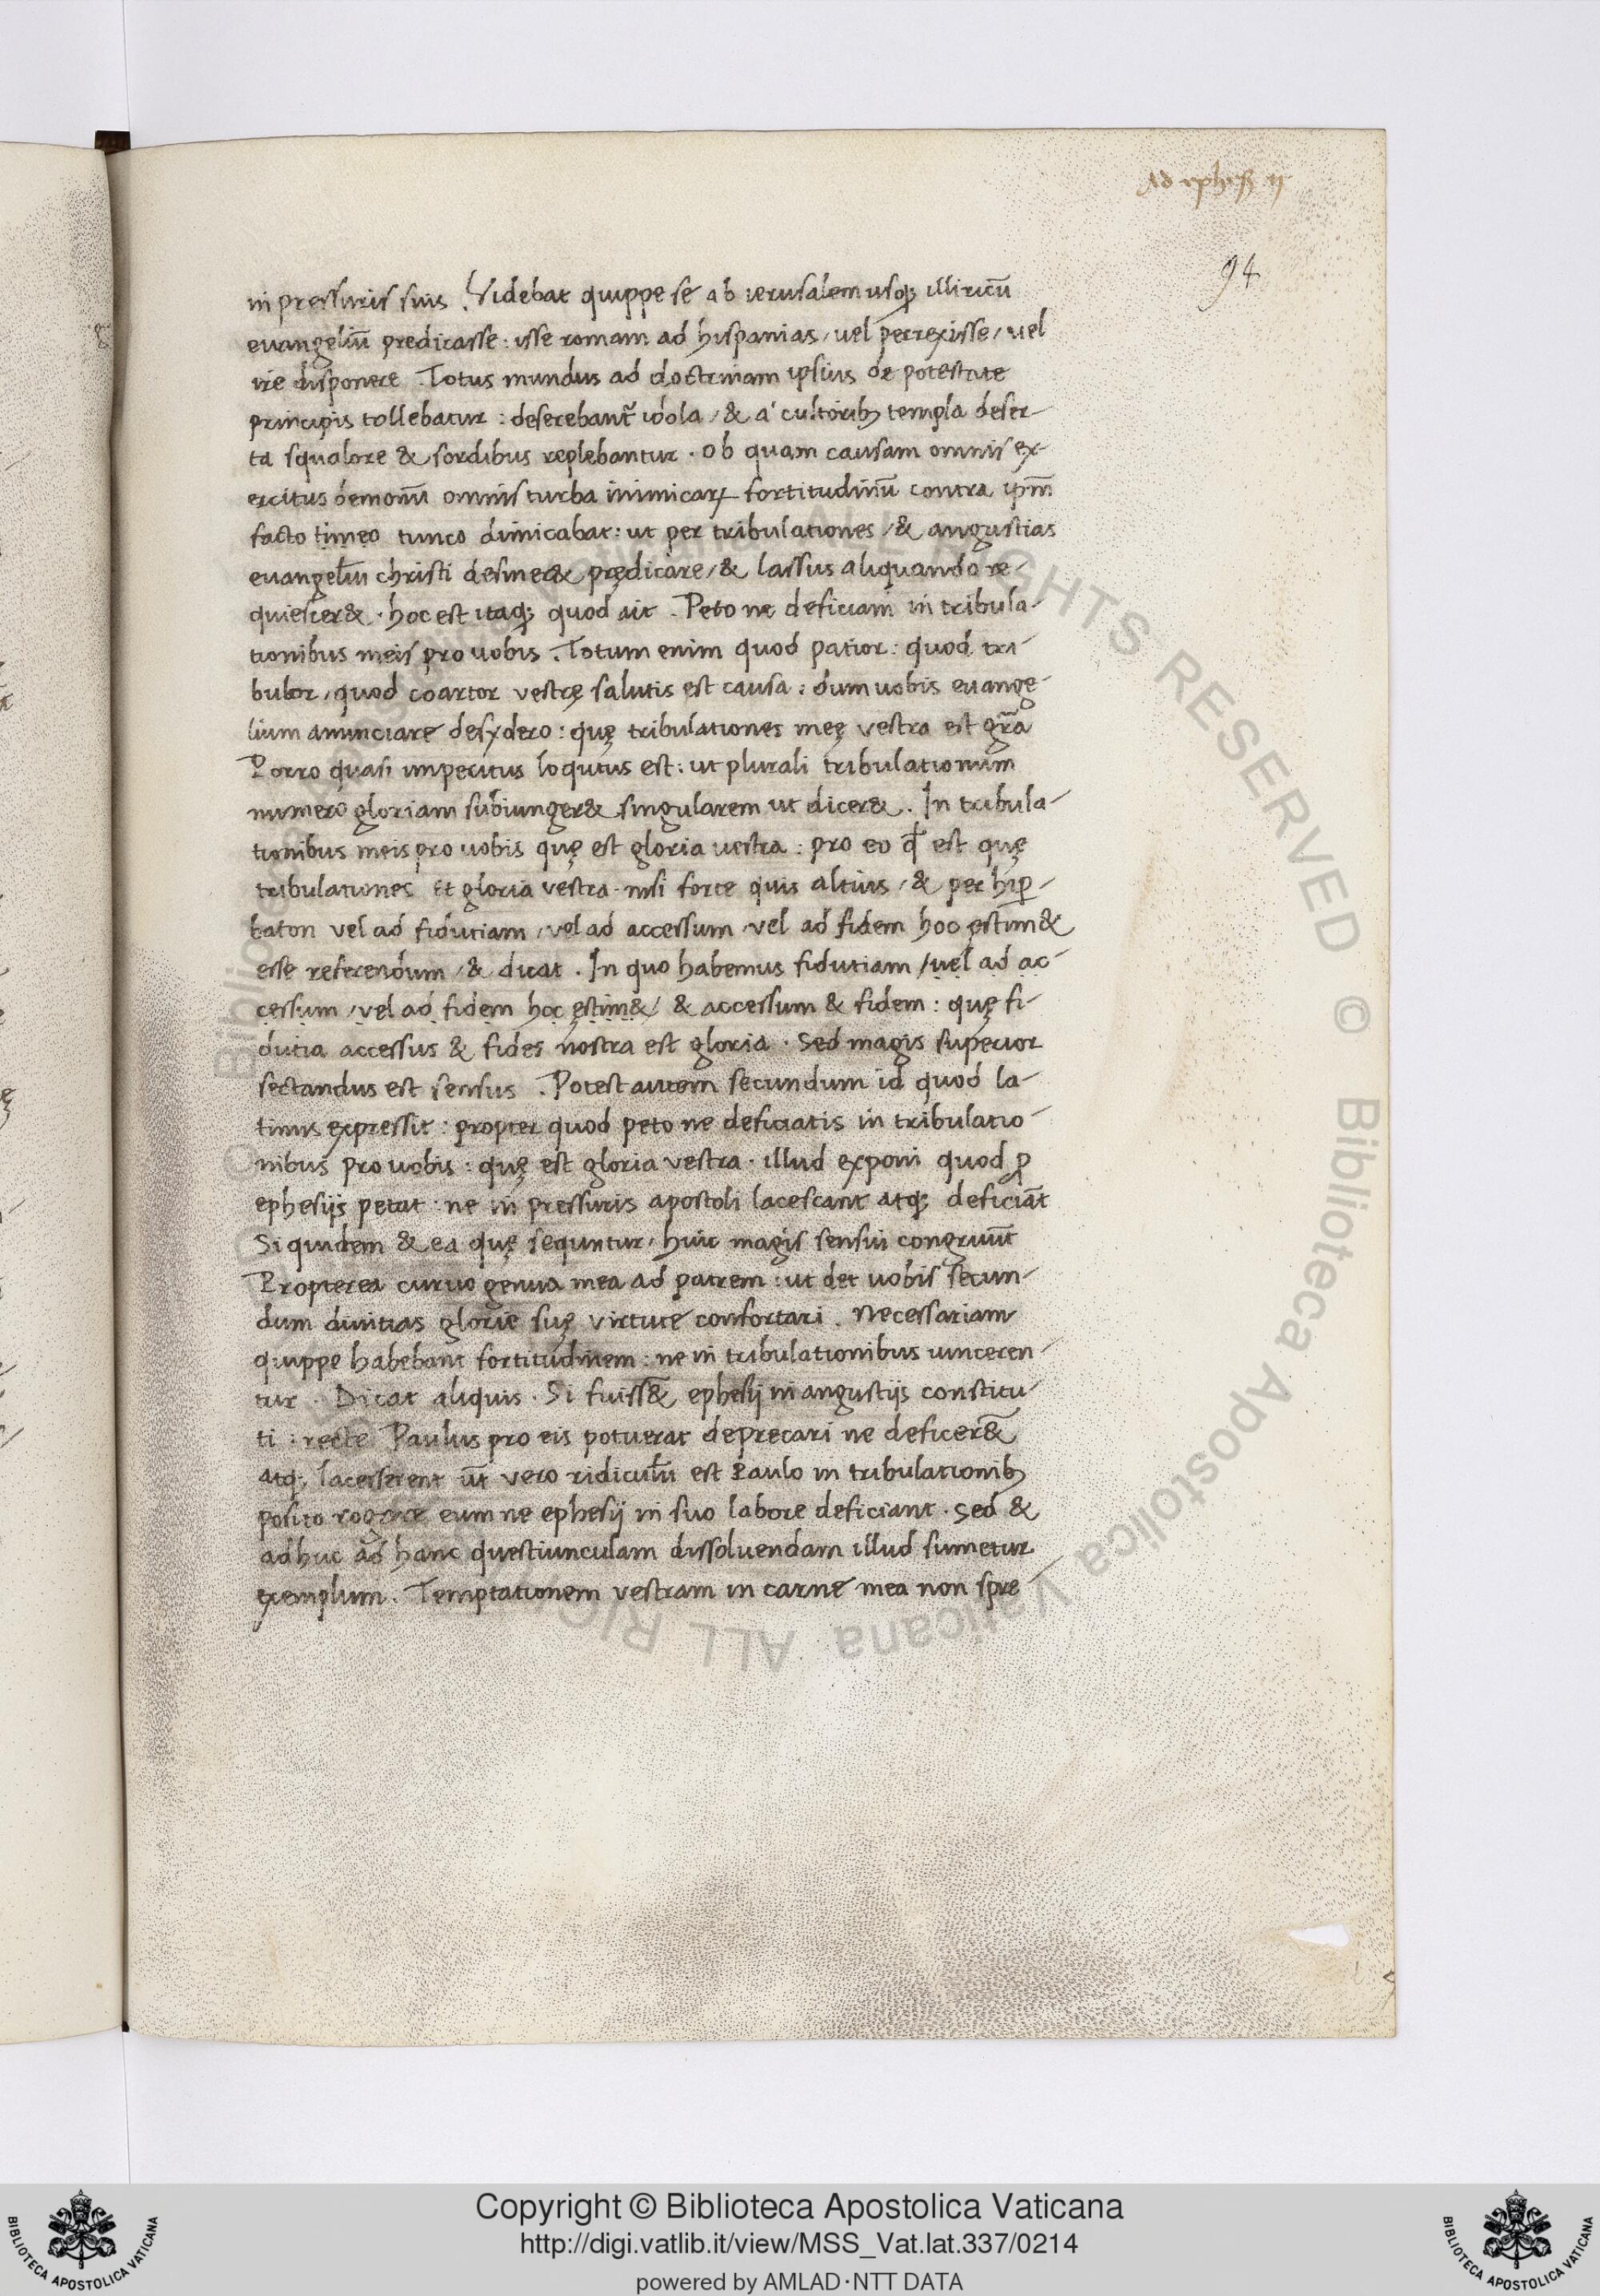 Ad ephes ij
94
in pressuris suis . Videbat quippe se ab ierusalem usq; illiricū
euangeliū predicasse : isse romam ad hispanias / uel perrexisse / uel
ire disponere . Totus mundus ad doctrinam ipsius de potestate
principis tollebatur : deserebant᷑ idola / & a cultorib; templa deser-
ta squalore & sordibus replebantur . ob quam causam omnis ex-
ercitus demonū omnis turba inimicaꝝ fortitudinū contra ip̄m
facto timeo cuneo dimicabat : ut per tribulationes / & angustias
euangeliū christi desiner& prędicare / & lassus aliquando re-
quiescer& . hoc est itaq; quod ait . Peto ne deficiam in tribula-
tionibus meis pro uobis . Totum enim quod patior : quod tri-
bulor / quod coartor vestrę salutis est causa : dum uobis euange-
lium annunciare desydero : quę tribulationes meę vestra est gr̄a
Porro quasi imperitus loqutus est : ut plurali tribulationum
numero gloriam subiunger& singularem ut dicer& . In tribula-
tionibus meis pro uobis quę est gloria uestra : pro eo qđ est quę
tribulationes et gloria vestra . nisi forte quis altius / & per hiꝑ-
baton vel ad fidutiam / vel ad accessum / vel ad fidem hoc estim&
esse referendum / & dicat . In quo habemus fidutiam / uel ad ac-
cessum / vel ad fidem hoc ęstim& / & accessum & fidem : quę fi-
dutia accessus & fides nostra est gloria . Sed magis superior
sectandus est sensus . Potest autem secundum id quod la-
tinus expressit : propter quod peto ne deficiatis in tribulatio-
nibus pro uobis : quę est gloria vestra . illud exponi quod ꝓ
ephesijs petat : ne in pressuris apostoli lacescant atq; deficiāt
Si quidem & ea quę sequntur / huic magis sensui congruūt
Propterea curuo genua mea ad patrem : ut det uobis secun-
dum diuitias glorie suę virtute confortari . Necessariam
quippe habebant fortitudinem : ne in tribulationibus uinceren-
tur . Dicat aliquis . Si fuiss& ephesij in angustijs constitu-
ti : recte Paulus pro eis potuerat deprecari ne deficer&
atq; lacesserent ūt vero ridiculū est Paulo in tribulationib;
posito rogare eum ne ephesij in suo labore deficiant . Sed &
adhuc ad hanc questiunculam dissoluendam illud sumetur
exemplum . Temptationem vestram in carne mea non spre-
Copyright © Biblioteca Apostolica Vaticana
http://digi.vatlib.it/view/MSS_Vat.lat.337/0214
powered by AMLAD·NTT DATA